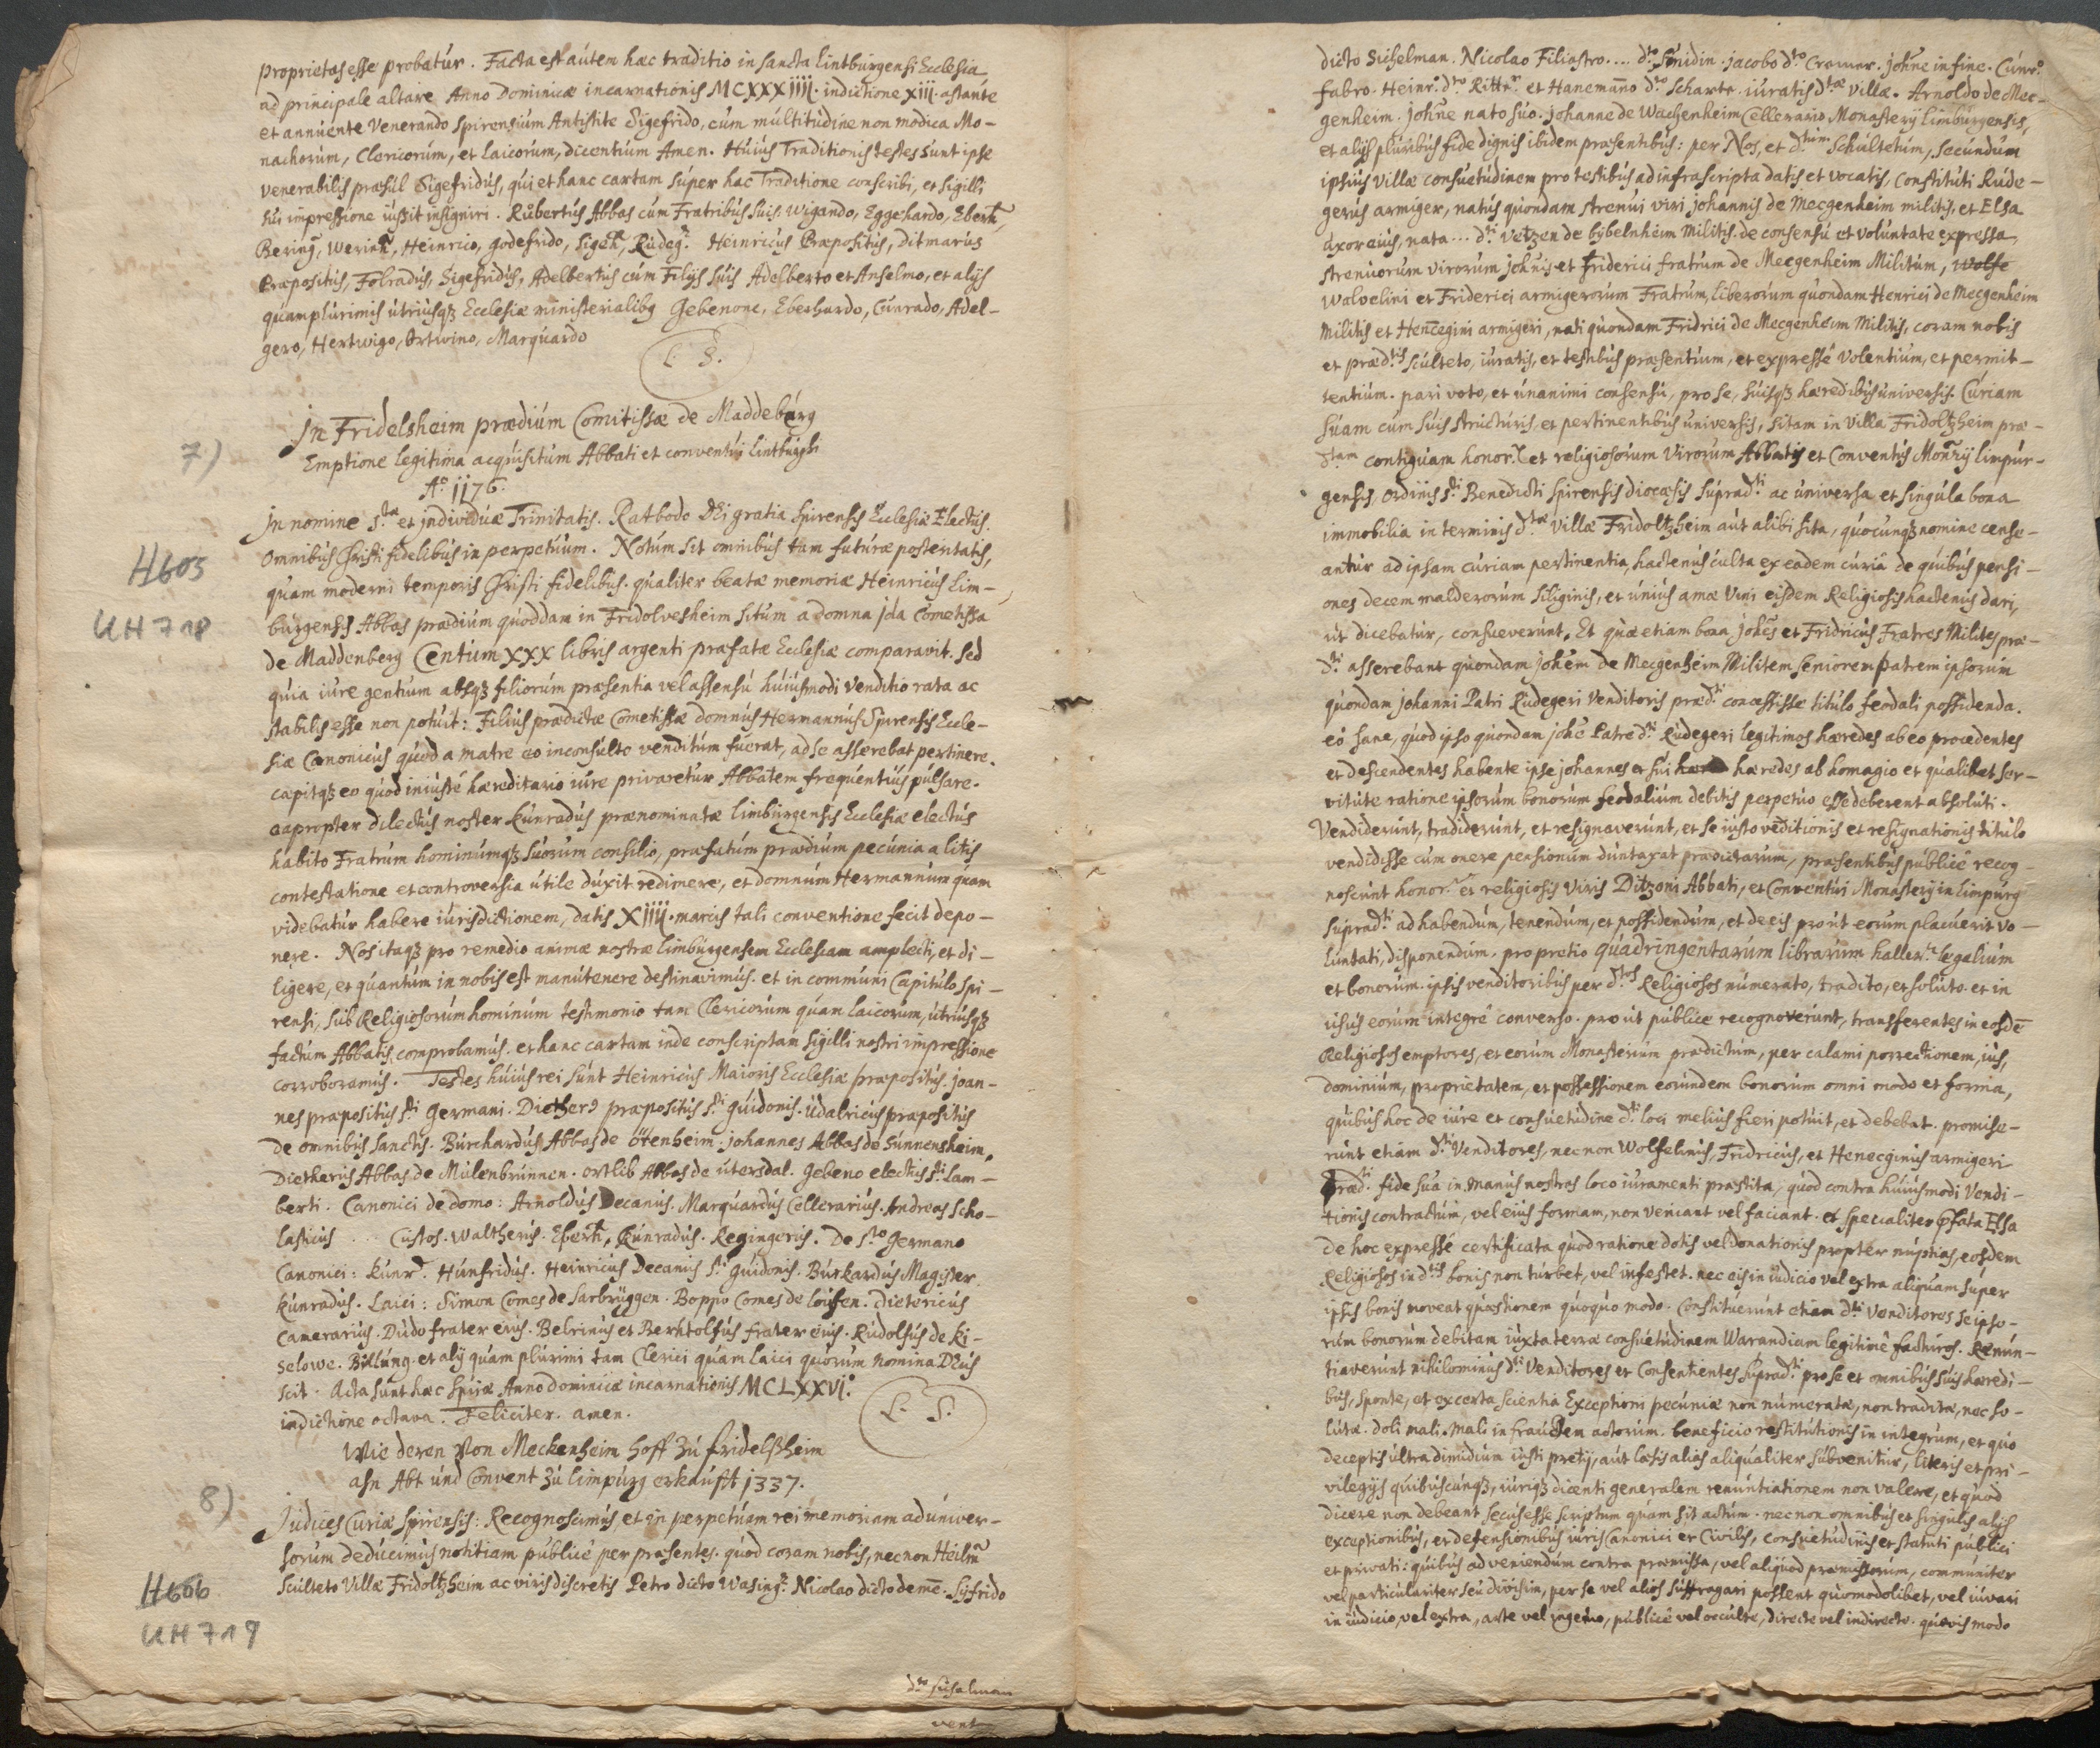 proprietas esse probatur. Facta est autem hæc traditio in sancta lintburgensi Ecclesia
ad principale altare Anno Dominicæ incarnationis MCXXXIIII. indictione XIII. astante
et annuente Venerando Spirensium Antistite Sigefrido, cum multitudine non modica Mo-
nachorum, Clericorum, et Laicorum, dicentium Amen. Huius Traditionis testes sunt ipse
venerabilis præsul Sigefridus, qui et hanc cartam super hac Traditione conscribi, et sigilli
sui impressione iussit insigniri. Růbertus Abbas cum Fratribus suis. Wigando, Eggehardo, Eberh,
Bering, Werinh, Heinrico, godefrido, Sigeh, Rudeg. Heinricus Præpositus, Ditmarus
Præpositus, Folradus, Sigefridus, Adelbertus cum Filijs suis Adelberto et Anselmo, et alijs
quamplurimis utriusqz Ecclesiæ ministerialibq Gebenone, Eberhardo, Cunrado, Adel-
gero, Hertwigo, Ortwino, Marquardo
L. S.
7)
In Fridelsheim prædium Comitissæ de Maddeburg
Emptione legitima acquisitum Abbati et conventui lintburgsi
Aº 1176.
H605
UH 718
In nomine S.tæ et individuæ Trinitatis. Ratbodo DEi gratia Spirensis Ecclesiæ Electus.
Omnibus Christi fidelibus in perpetuum. Notum sit omnibus tam futuræ posteritatis,
quam moderni temporis Christi fidelibus. qualiter beatæ memoriæ Heinricus Lim-
burgensis Abbas prædium quoddam in Fridolvesheim situm a domna Jda Cometissa
de Maddenberg Centum XXX libris argenti præfatæ Ecclesiæ comparavit. sed
quia iure gentium absqz filiorum præsentia vel assensu huiusmodi venditio rata ac
stabilis esse non potuit: Filius prædictæ Cometissæ domnus Hermannus Spirensis Eccle-
siæ Canonicus quod a matre eo inconsulto venditum fuerat, ad se asserebat pertinere.
capitqz eo quod iniuste hæreditario iure privaretur Abbatem frequentius pulsare.
eapropter dilectus noster Kunradus prænominatæ limburgensis Ecclesiæ electus
habito Fratrum hominumqz suorum consilio, præfatum prædium pecunia a litis
contestatione et controversia utile duxit redimere, et domnum Hermannum quam
videbatur habere iurisdictionem, datis XIIII. marcis tali conventione fecit depo-
nere. Nos itaqz pro remedio animæ nostræ limburgensem Ecclesiam amplecti, et di-
ligere, et quantum in nobis est manutenere destinavimus. et in communi Capitulo Spi-
rensi, sub Religiosorum hominum testimonio tam Clericorum quam laicorum, utriusqz
factum Abbatis comprobamus. et hanc cartam inde conscriptam sigilli nostri impressione
corroboramus. Testes huius rei sunt Heinricus Maioris Ecclesiæ præpositus. Joan-
nes præpositus S.ti Germani. Diether præpositus S.ti Guidonis. Udalricus præpositus
de omnibus Sanctis. Burchardus Abbas de Otenheim. Johannes Abbas de Sunnensheim.
Dietherus Abbas de Mulenbrunnen. Ortlib Abbas de Utersdal. Gebeno electus S.ti Lam-
berti. Canonici de domo: Arnoldus Decanus. Marquardus Cellerarius. Andreas Scho-
lasticus ... Custos. Waltherus. Eberh, Kunradus. Regingerus. De S.to Germano
Canonici: Kunr.d Hunfridus. Heinricus Decanus S.ti Guidonis. Burkardus Magister.
Kunradus. Laici: Simon Comes de Sarbrüggen. Boppo Comes de loufen. Dietericus
Camerarius. Dudo frater eius. Belrinus et Berhtolfus frater eius. Rudolfus de Ki-
selowe. Billung. et alij quam plurimi tam Clerici quam Laici quorum nomina DEus
scit. Acta sunt hæc Spiræ Anno dominicæ incarnationis MCLXXVI.º
indictione octava. Feliciter. amen.
L. S.
Wie deren Von Meckenheim hoff zu fridelßheim
ahn Abt und Convent zu limpurg erkaufft 1337.
8)
Judices Curiæ Spirensis: Recognoscimus et in perpetuam rei memoriam ad univer-
sorum deducimus notitiam publicè per præsentes. quod coram nobis, necnon Heilm
H606
UH 719
Sculteto Villæ Fridoltzheim ac viris discretis Petro dicto Wasing. Nicolao dicto deme. Syfrido
d.to sichelman
vent
dicto Sichelman. Nicolao Filiastro.... d.to Smidin. Jacobo d.to Cremer. Johne in fine. Cunr.º
fabro. Heinr.º d.to Ritter et Hanemanno d.to Scharte. iuratis d.tæ villæ. Arnoldo de Mec-
genheim. Johne nato suo. Johanne de Wachenheim Cellerario Monasterij limburgensis,
et alijs pluribus fide dignis ibidem præsentibus: per Nos, et d.tum Schultetum, secundum
ipsius villæ consuetudinem pro testibus ad infrascripta datis et vocatis, Constituti Rude-
gerus armiger, natus quondam strenui viri Johannis de Mecgenheim militis, et Elsa
uxor eius, nata ... d.ti Vetzen de bybelnheim Militis. de consensu et voluntate expressa
strenuorum virorum Johnis et Friderici fratrum de Mecgenheim Militum, Wolfe
Wolvelini et Friderici armigerorum Fratrum, liberorum quondam Henrici de Mecgenheim
Militis et Hencegini armigeri, nati quondam Fridrici de Mecgenheim Militis, coram nobis
et præd.tis Sculteto, iuratis, et testibus præsentium, et expressè volentium, et permit-
tentium. pari voto, et unanimi consensu, pro se, suisqz hæredibus universis. Curiam
suam cum suis structuris et pertinentibus universis, sitam in villa Fridoltzheim præ-
d.tam contiguam honor. et religiosorum virorum Abbatis et Conventus Monrij limpur-
gensis, ordinis S.ti Benedicti Spirensis diocæsis suprad.ti ac universa et singula bona
immobilia in terminis d.tæ villæ Fridoltzheim aut alibi sita, quocunqz nomine cense-
antur ad ipsam curiam pertinentia, hactenus culta ex eadem curiâ de quibus pensi-
ones decem malderorum siliginis, et unius amæ vini eisdem Religiosis hactenus dari,
ut dicebatur, consueverunt. Et quæ etiam bona Johes et Fridricus Fratres Milites præ-
d.ti asserebant quondam Johem de Mecgenheim Militem seniorem patrem ipsorum
quondam Johanni Patri Rudegeri venditoris præd.ti concessisse titulo feodali possidenda.
eò sane, quod ipso quondam Johe Patre d.ti Rudegeri legitimos hæredes ab eo procedentes
et descendentes habente ipse Johannes et sui hæredes ab homagio et qualibet ser-
vitute ratione ipsorum bonorum feodalium debitis perpetuo esse deberent absoluti.
Vendiderunt, tradiderunt, et resignaverunt, et se iusto veditionis et resignationis titulo
vendidisse cum onere pensionum duntaxat prædictarum, præsentibus publicè recog-
noscunt honor. et religiosis viris Ditzoni Abbati, et Conventui Monasterij in limpurg
suprad.ti ad habendum, tenendum, et possidendum, et de eis prout eorum placuerit vo-
luntati, disponendum. pro pretio quadringentarum librarum haller. legalium
et bonorum. ipsis venditoribus per d.tos Religiosos numerato, tradito, et soluto. et in
usus eorum integrè converso. prout publicè recognoverunt, transferentes in eosdē
Religiosos emptores, et eorum Monasterium prædictum, per calami porrectionem, ius,
dominium, proprietatem, et possessionem eorundem bonorum omni modo et forma,
quibus hoc de iure et consuetudine d.ti loci melius fieri potuit, et debebat. promise-
runt etiam d.ti Venditores, necnon Wolfelinus, Fridricus, et Henecginus armigeri
præd.ti fide sua in manus nostras loco iuramenti præstita, quod contra huiusmodi vendi-
tionis contractum, vel eius formam, non veniant vel faciant. et specialiter p̄fata Elsa
de hoc expressè certificata quod ratione dotis vel donationis propter nuptias, eosdem
Religiosos in d.tis bonis non turbet, vel infestet. nec eis in iudicio vel extra aliquam super
ipsis bonis moveat quæstionem quoquo modo. Constituerunt etiam d.ti Venditores se ipso-
rum bonorum debitam iuxta terræ consuetudinem Warandiam legitimè facturos. Renun-
tiaverunt nihilominus d.ti Venditores et Consentientes suprad.ti pro se et omnibus suis hæredi-
bus, sponte, et ex certa scientia Exceptioni pecuniæ non numeratæ, non traditæ, nec so-
lutæ. doli mali. Mali in fraudem actorum. beneficio restitutionis in integrum, et quo
deceptis ultra dimidium iusti pretij, aut læsis alias aliqualiter subvenitur, literis et pri-
vilegijs quibuscunqz, iuriqz dicenti generalem renuntiationem non valere, et quod
dicere non debeant secus esse scriptum quam sit actum. necnon omnibus et singulis alijs
exceptionibus, et defensionibus iuris Canonici et Civilis, consuetudinis et statuti publici
et privati: quibus ad veniendum contra præmissa, vel aliquod præmissorum, communiter
vel particulariter seu divisim, per se vel alios suffragari possent quomodolibet, vel iuvari
in iudicio, vel extra, arte vel ingenio, publicè vel occultè, directe vel indirecte. quovis modo